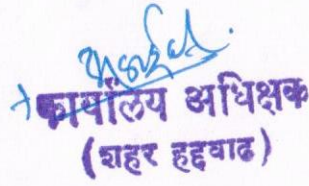 कार्यालय अधिक्षक
(शहर हद्दवाढ)